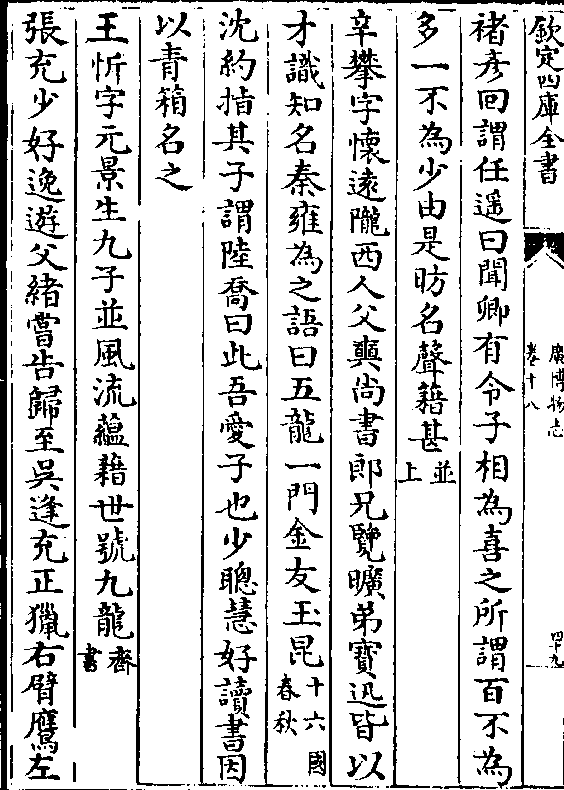 欽定四庫全書
廣博物志
卷十八
四十九
褚彦回謂任遥曰聞卿有令子相為喜之所謂百不為
多一不為少由是昉名聲藉甚並上
辛攀字懷遠隴西人父奭尚書郎兄覽曠弟寳迅皆以
才識知名秦雍為之語曰五龍一門金友玉昆十六國春秋
沈約指其子謂陸喬曰此吾愛子也少聰慧好讀書因
以青箱名之
王忻字元景生九子並風流藴藉世號九龍齊書
張充少好逸遊父緒嘗告歸至吳逢充正獵右臂鷹左